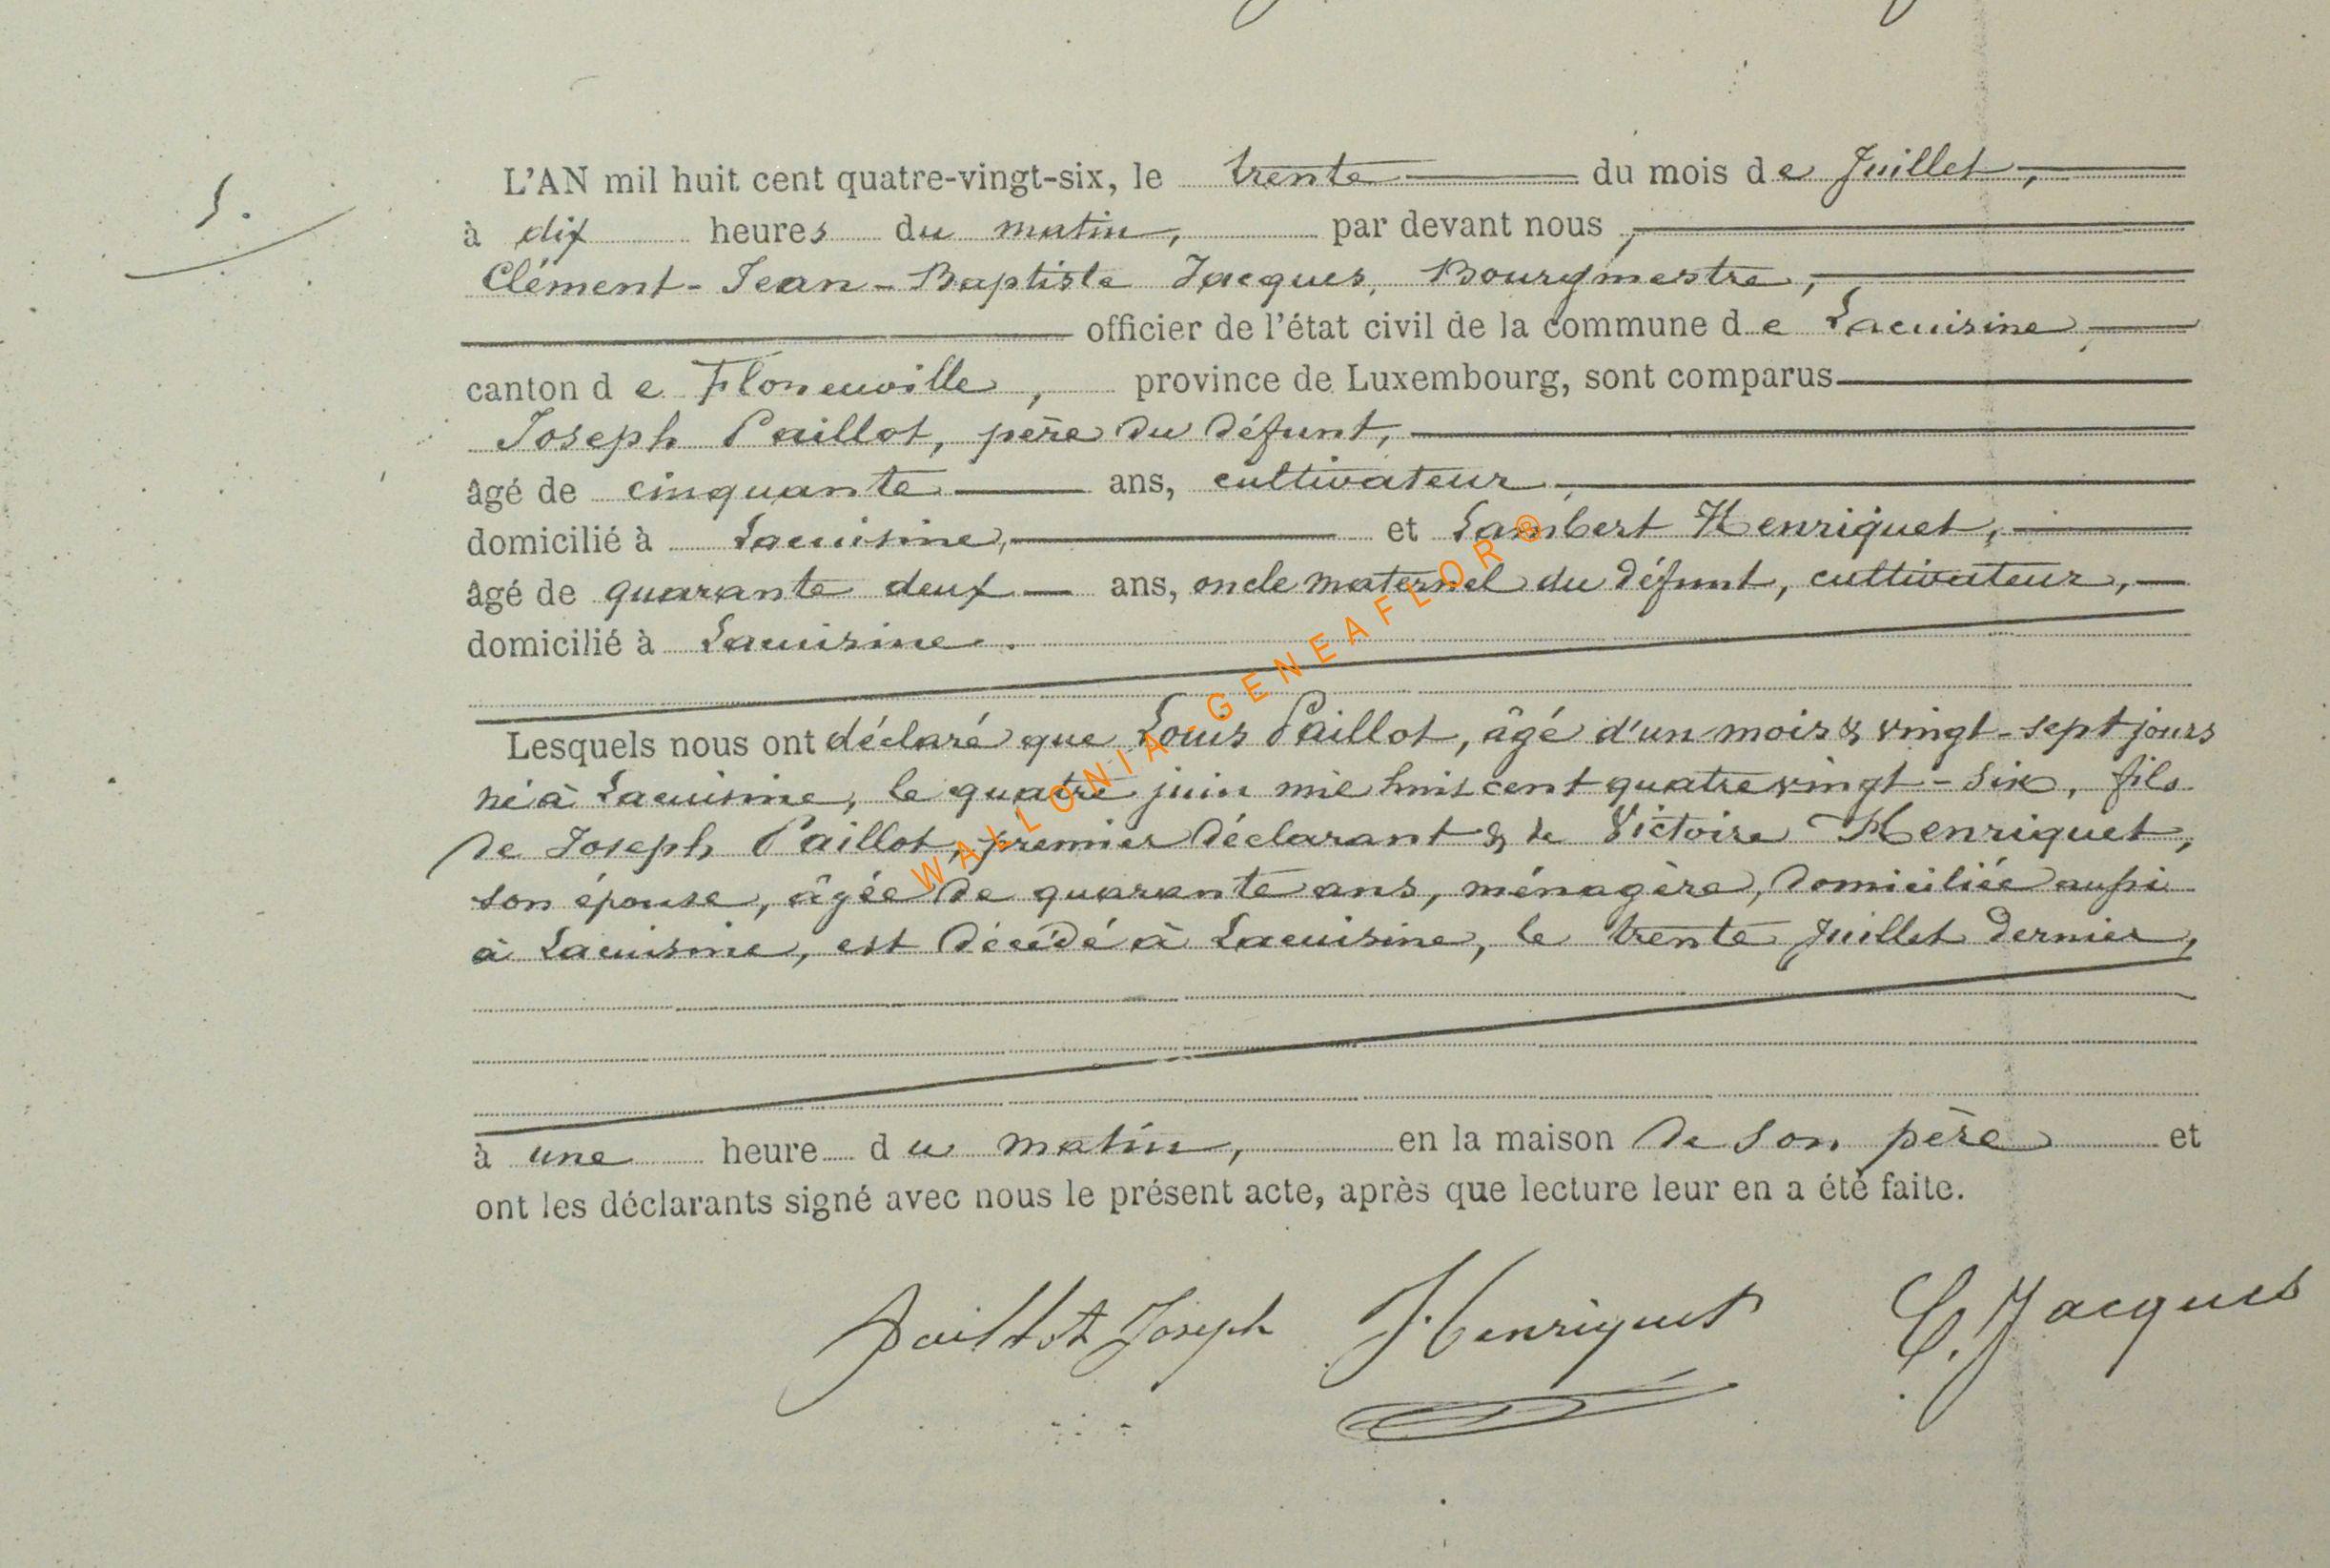 5.
L'AN mil huit cent quatre-vingt-six, le trente du mois de Juillet,
à dix heures du matin, par devant nous,
Clément-Jean-Baptiste Jacques, Bourgmestre,
officier de l'état civil de la commune de Lacuisine,
canton de Florenville, province de Luxembourg, sont comparus
Joseph Paillot, père du défunt,
âgé de cinquante ans, cultivateur,
domicilié à Lacuisine, et Lambert Henriquet,
âgé de quarante deux ans, oncle maternel du défunt, cultivateur,
domicilié à Lacuisine.
Lesquels nous ont déclaré que Louis Paillot, âgé d'un mois & vingt-sept jours
né à Lacuisine, le quatre juin mil huit cent quatre vingt-six, fils
de Joseph Paillot, premier déclarant & de Victoire Henriquet,
son épouse, âgée de quarante ans, ménagère, domiciliée aussi
à Lacuisine, est décédé à Lacuisine, le trente Juillet dernier,
à une heure du matin, en la maison de son père et
ont les déclarants signé avec nous le présent acte, après que lecture leur en a été faite.
Paillot Joseph Henriquet C. Jacques
WALLONIA-GENEAFLOR®